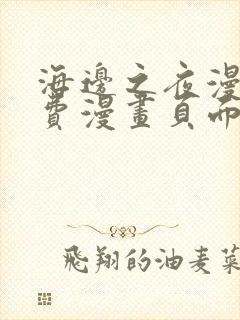 海邊之夜漫
費漫畫頁面
飛翔的油麦菜